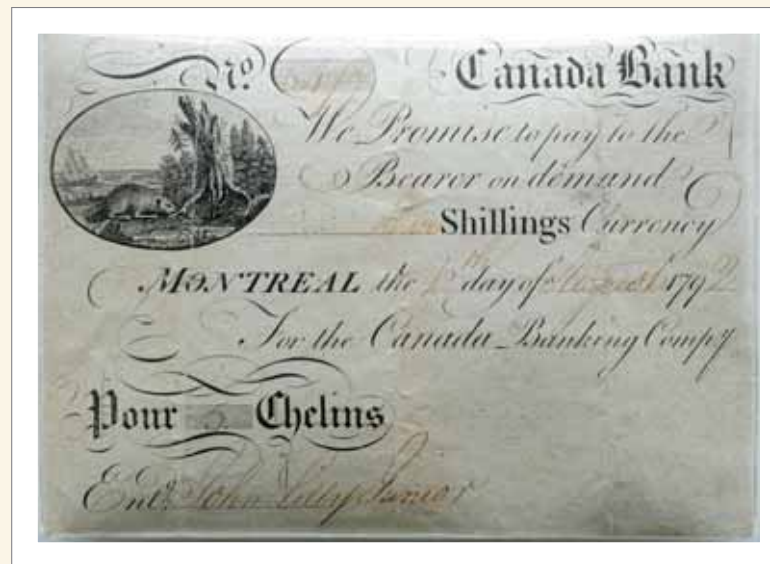 No. Canada Bank
We Promise to pay to the
Bearer on demand
Shillings Currency
MONTREAL the 10th day of August 1792
For the Canada Banking Compy
Pour 5 Chelins
Entd. John Lilly Junior